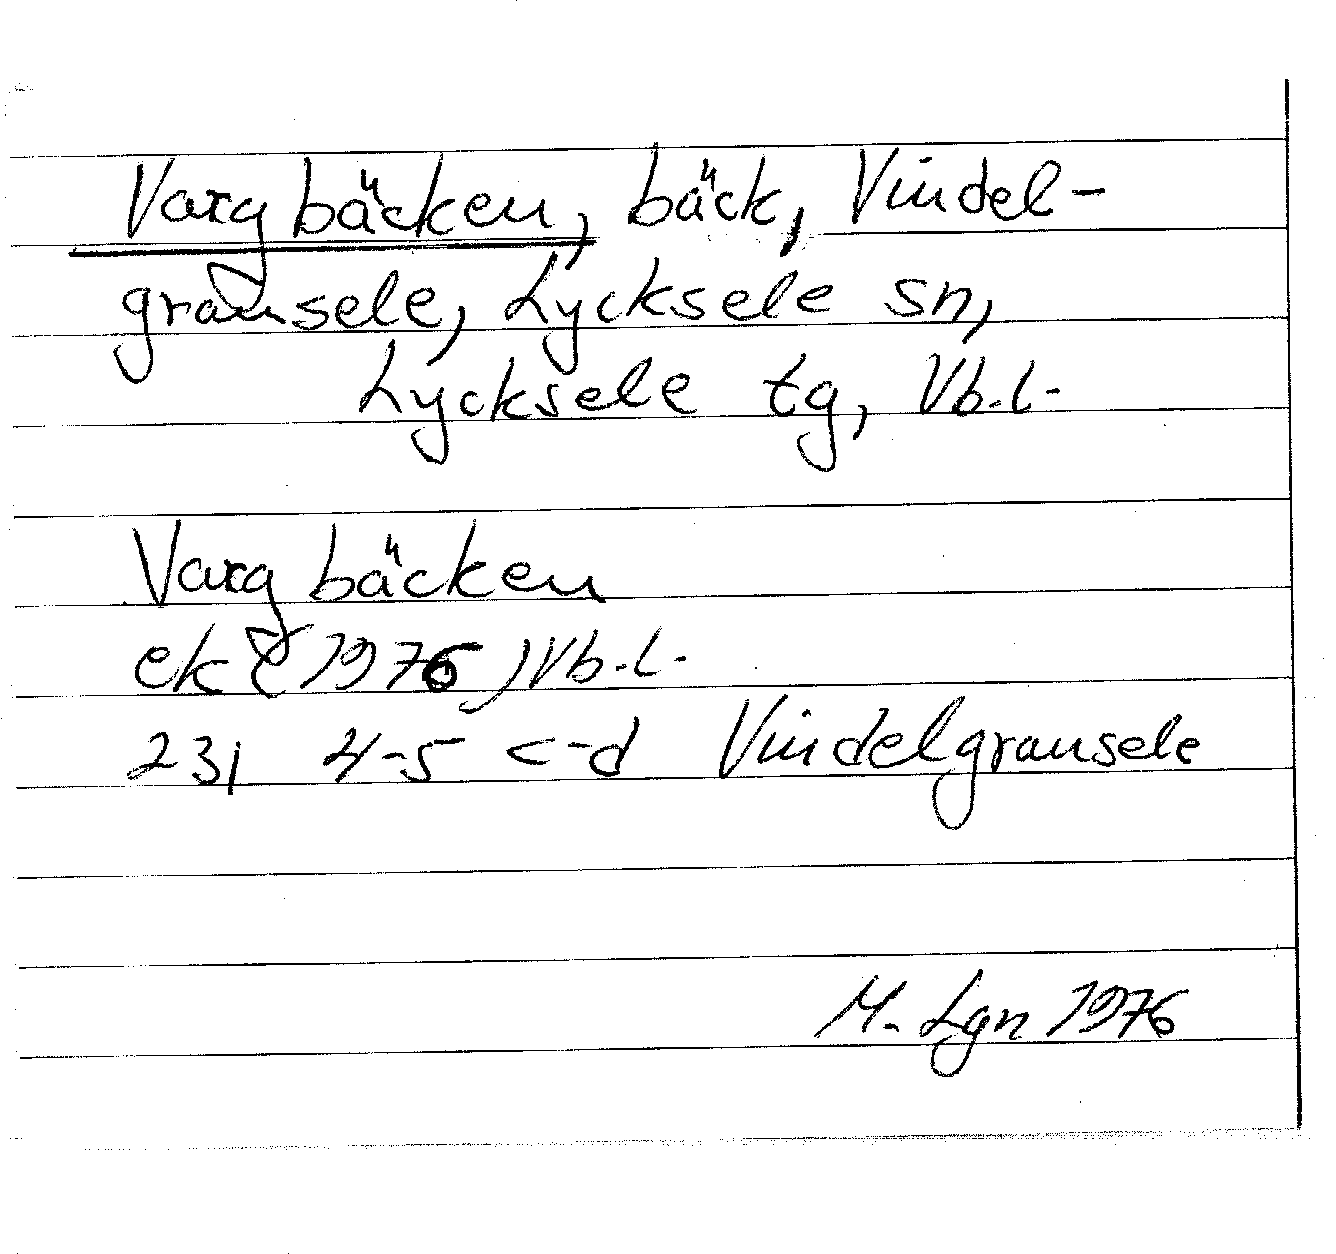 Vargbäcken, bäck, Vindel-
gransele, Lycksele sn,
Lycksele tg, Vb.l.
Vargbäcken
ek (1976) Vb.l.
231 4-5 c-d Vindelgransele
M. Lgn 1976